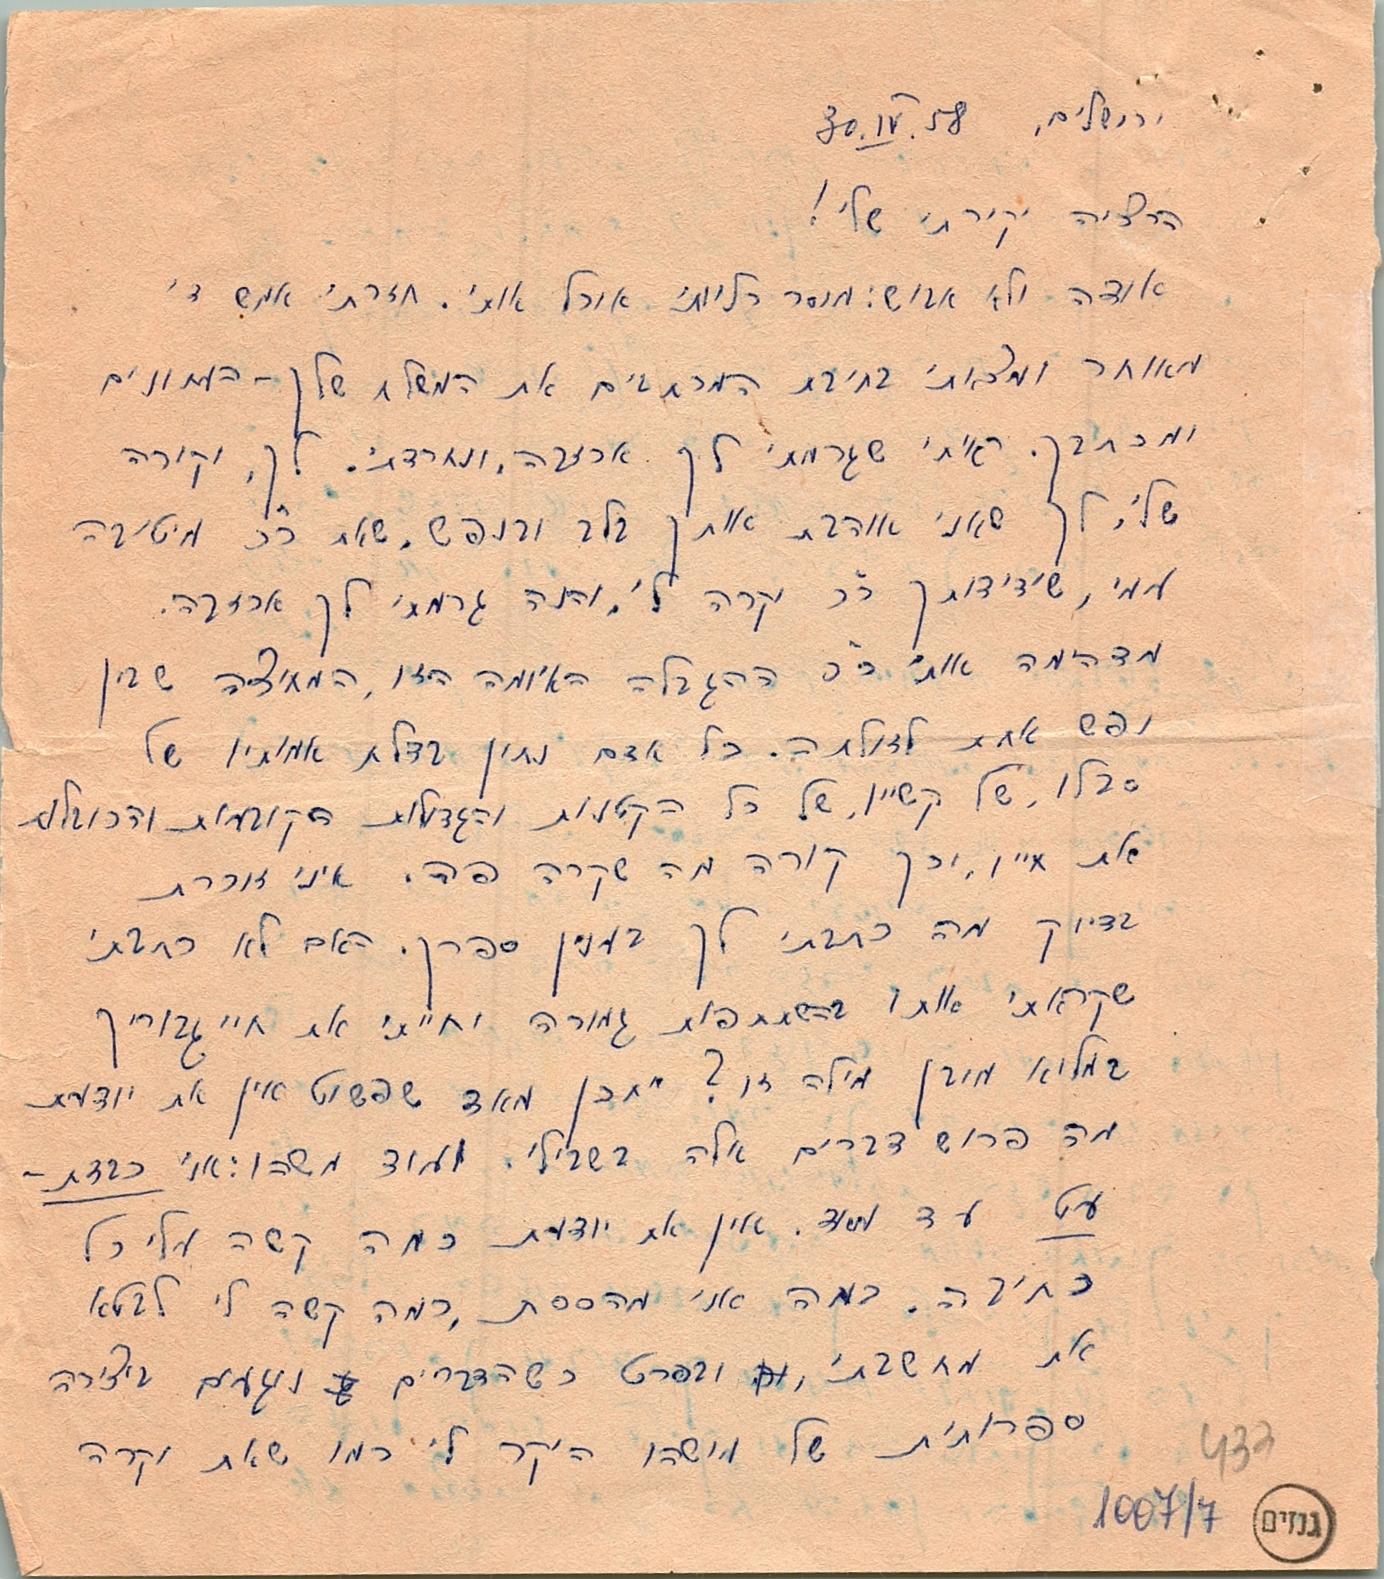 ירושלים, 30.IV.58
הרציה יקירתי שלי!
אודה ולא אבוש: מוסר כליותי אוכל אותי. חזרתי אמש די
מאוחר ומצאתי בתיבת המכתבים את המשלח שלך – העתונים
ומכתבך. ראיתי שגרמתי לך אכזבה, ונחרדתי. לך, יקרה
שלי, לך שאני אוהבת אותך בלב ובנפש, שאת כ"כ מיטיבה
עמי, שידידותך כ"כ יקרה לי, והנה גרמתי לך אכזבה.
מדהימה אותי כ"כ ההגבלה האיומה הזו, המחיצה שבין
נפש אחת לזולתה. כל אדם נתון בדלת אמותיו של
סבלו, של קשייו, של כל הקטנות והגדולות הקובעות והכובלות
את חייו, וכך קורה מה שקרה פה. איני זוכרת
בדיוק מה כתבתי לך בענין ספרך. האם לא כתבתי
שקראתי אותו בהשתתפות גמורה וחייתי את חיי גבוריך
במלוא מובן מילה זו? יתכן מאד שפשוט אין את יודעת
מה פרוש דברים אלה בשבילי. ועוד משהו: אני כבדת –
עט עד מאוד. אין את יודעת כמה קשה עלי כל
כתיבה. כמה אני מהססת, כמה קשה לי לבטא
את מחשבתי, ובפרט כשהדברים נוגעים ביצירה
ספרותית של מישהו היקר לי כמו שאת יקרה
433
1007/7
גנזים